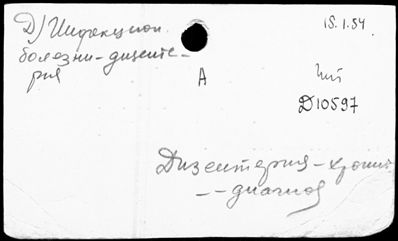 Д) Инфекцион.
болезни - дизенте-
рия
15.1.54.
А
Д10597
Дизентерия - хронич
-- диагноз